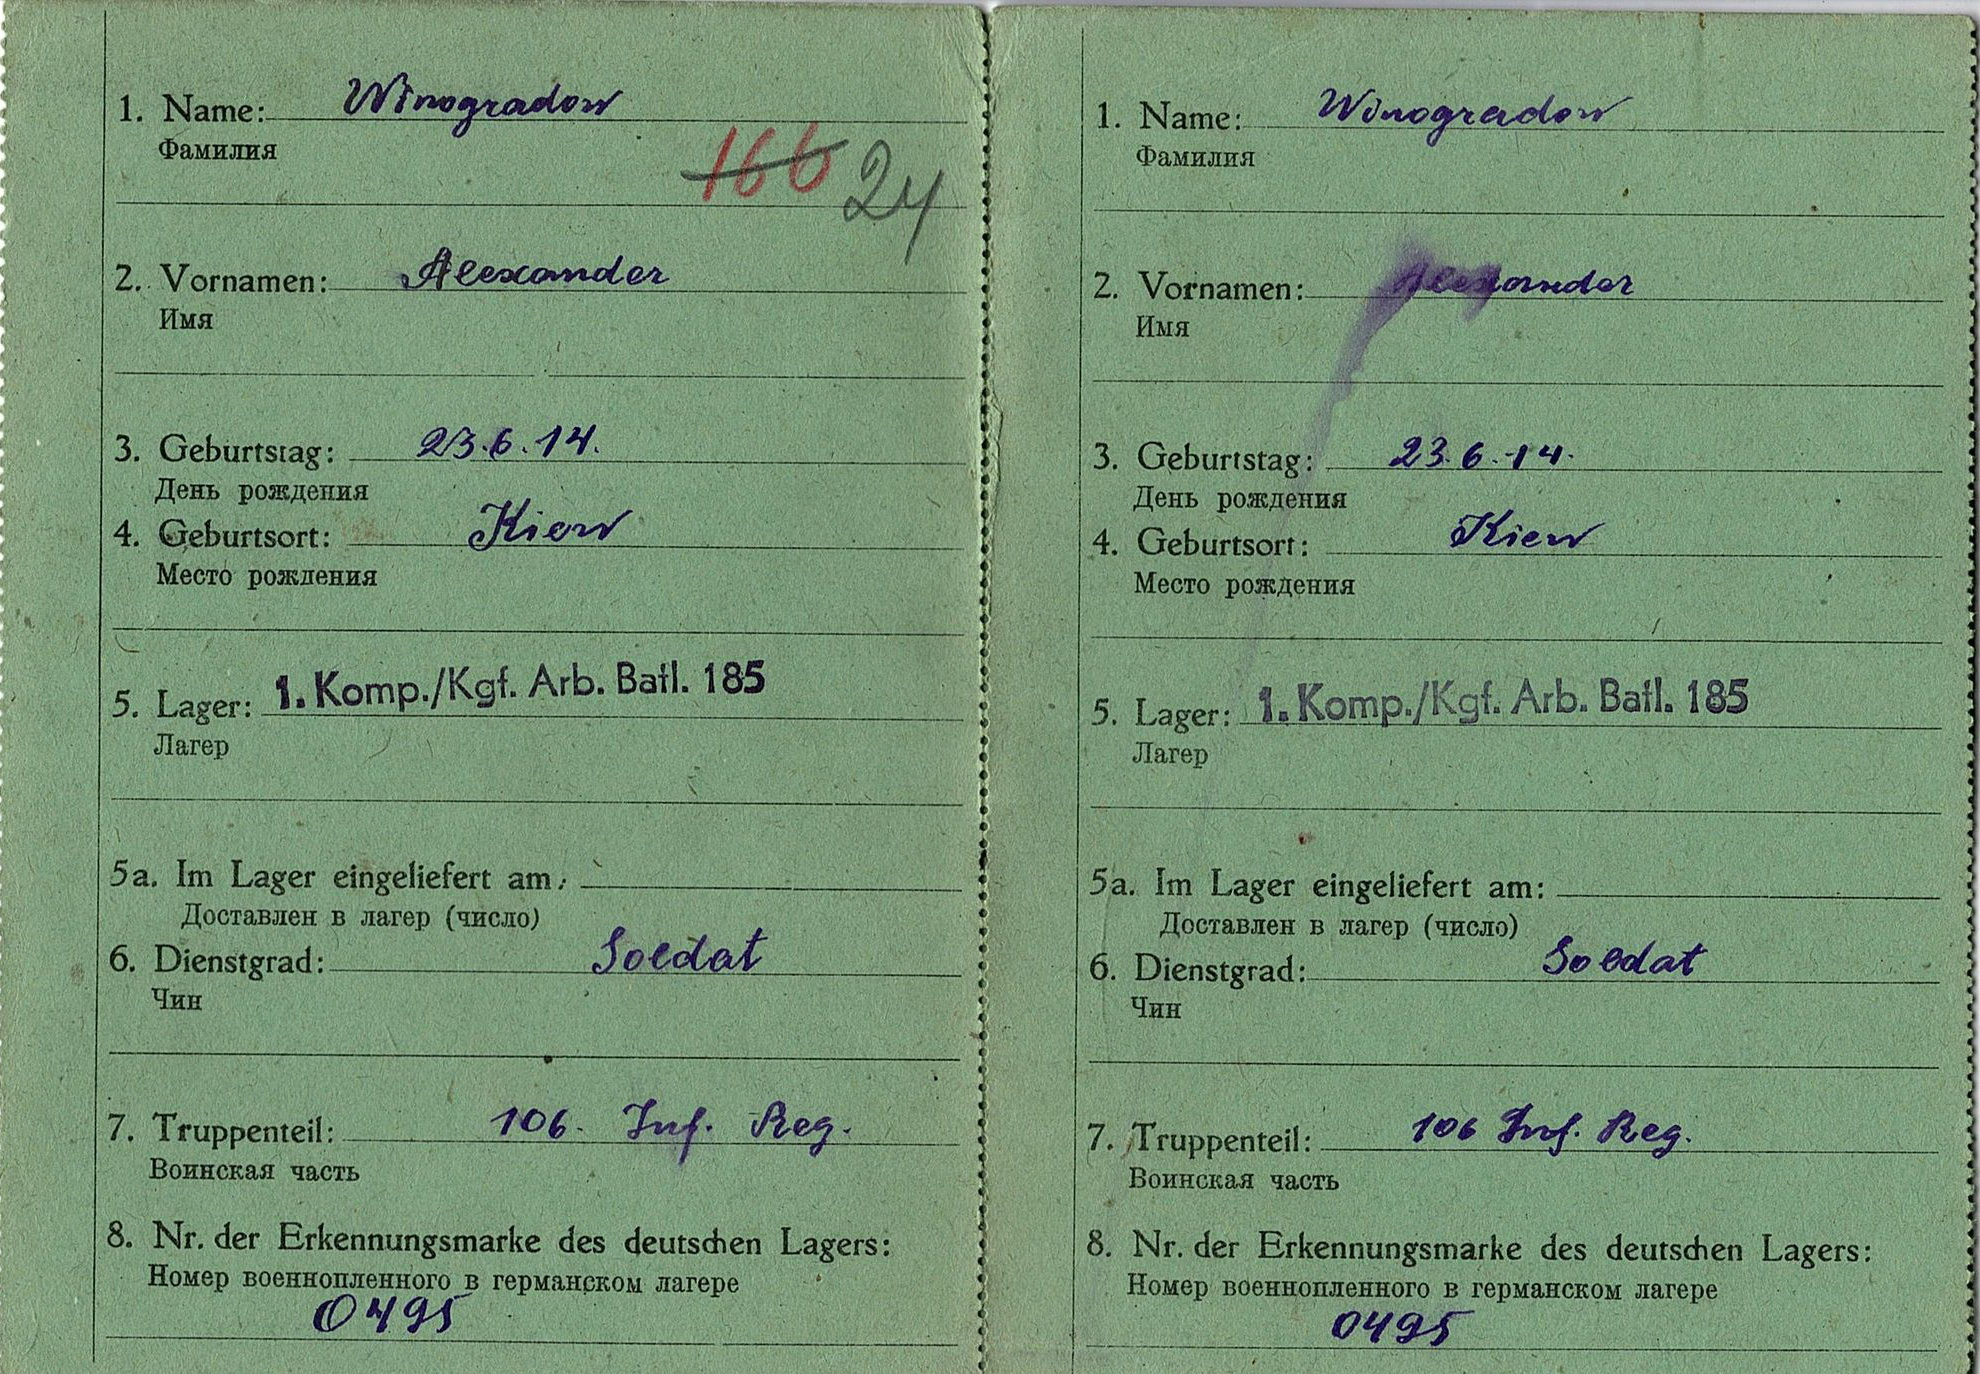 1. Name: Winogradow
Фамилия
166 24
2. Vornamen: Alexander
Имя
3. Geburtstag: 23.6.14.
День рождения
4. Geburtsort: Kiew
Место рождения
5. Lager: 1. Komp./Kgf. Arb. Batl. 185
Лагер
5a. Im Lager eingeliefert am:
Доставлен в лагер (число)
6. Dienstgrad: Soldat
Чин
7. Truppenteil: 106. Inf. Reg.
Воинская часть
8. Nr. der Erkennungsmarke des deutschen Lagers:
Номер военнопленного в германском лагере
0495
1. Name: Winogradow
Фамилия
2. Vornamen: Alexander
Имя
3. Geburtstag: 23.6.14.
День рождения
4. Geburtsort: Kiew
Место рождения
5. Lager: 1. Komp./Kgf. Arb. Batl. 185
Лагер
5a. Im Lager eingeliefert am:
Доставлен в лагер (число)
6. Dienstgrad: Soldat
Чин
7. Truppenteil: 106 Inf. Reg.
Воинская часть
8. Nr. der Erkennungsmarke des deutschen Lagers:
Номер военнопленного в германском лагере
0495